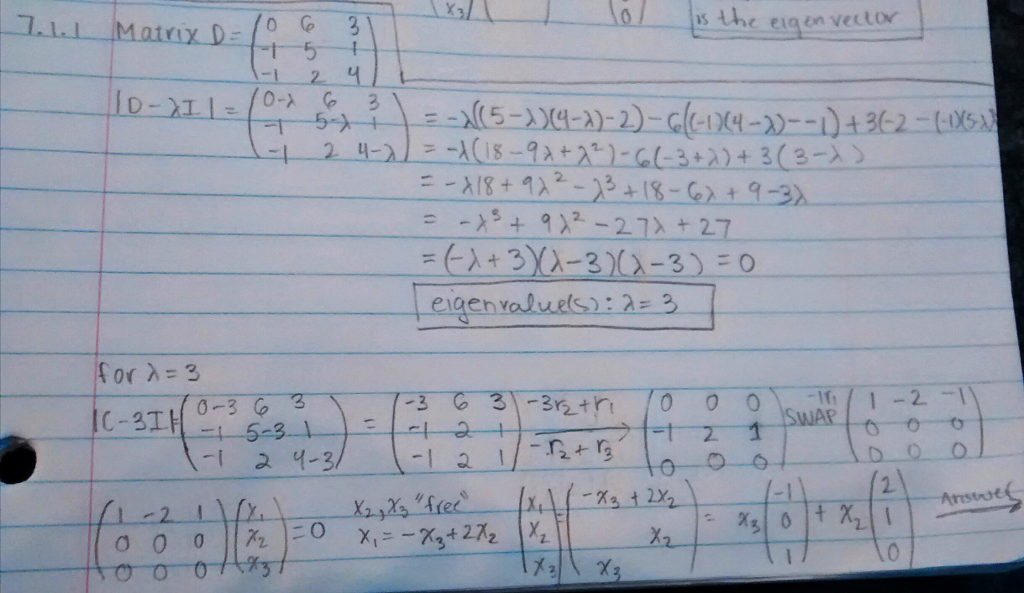 (x₃) ( ) (0) is the eigenvector
7.1.1 Matrix D = (0 6 3
-1 5 1
-1 2 4)
|D-λI| = (0-λ 6 3
-1 5-λ 1
-1 2 4-λ)
= -λ((5-λ)(4-λ)-2) - 6((-1)(4-λ)--1) + 3(-2-(-1)(5-λ)
= -λ(18-9λ+λ²) - 6(-3+λ) + 3(3-λ)
= -λ18 + 9λ² - λ³ + 18 - 6λ + 9 - 3λ
= -λ³ + 9λ² - 27λ + 27
= (-λ+3)(λ-3)(λ-3) = 0
eigenvalue(s): λ = 3
for λ = 3
|C-3I| = (0-3 6 3
-1 5-3 1
-1 2 4-3)
= (-3 6 3
-1 2 1
-1 2 1)
-3r₂+r₁
-r₂+r₃
(0 0 0
-1 2 1
0 0 0)
-1r₁
SWAP
(1 -2 -1
0 0 0
0 0 0)
(1 -2 1
0 0 0
0 0 0)
(x₁
x₂
x₃) = 0
x₂, x₃ "free"
x₁ = -x₃ + 2x₂
(x₁
x₂
x₃) = (-x₃ + 2x₂
x₂
x₃)
= x₃ (-1
0
1) + x₂ (2
1
0)
Answer